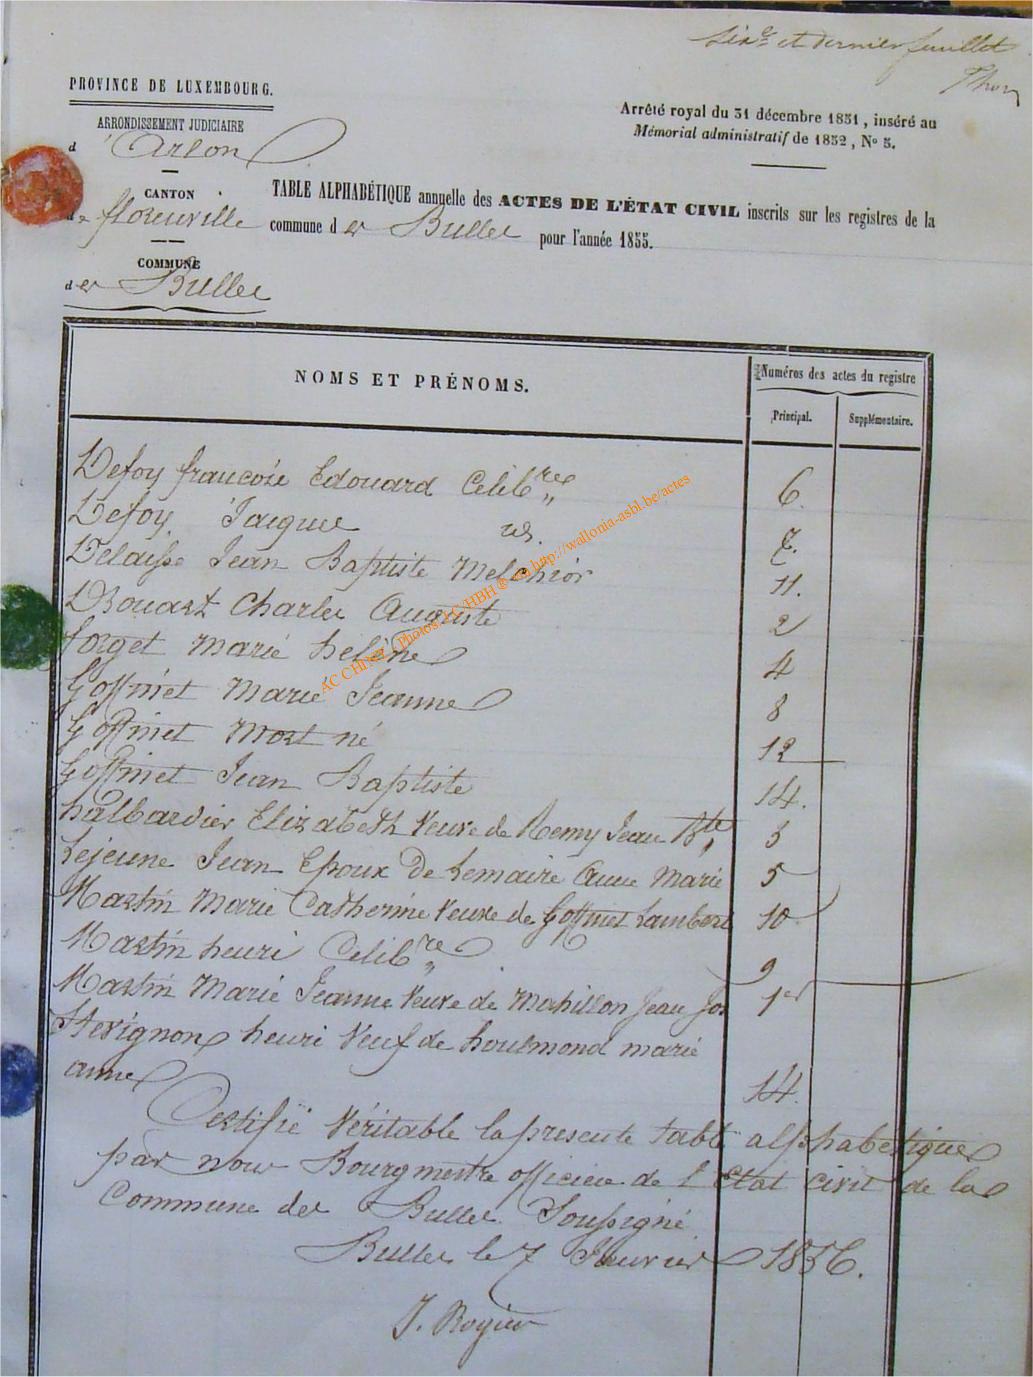 Six.e et dernier feuillet
Thon
PROVINCE DE LUXEMBOURG.
ARRONDISSEMENT JUDICIAIRE
d'Arlon
CANTON
de florenville
COMMUNE
des Bulles
Arrêté royal du 31 décembre 1851, inséré au
Mémorial administratif de 1852, No 5.
TABLE ALPHABÉTIQUE annuelle des ACTES DE L'ÉTAT CIVIL inscrits sur les registres de la
commune des Bulles pour l'année 1855.
NOMS ET PRÉNOMS.
Numéros des actes du registre
Principal. Supplémentaire.
Defoy francois Edouard Celib.re 6.
Defoy Jacques id. 7.
Delaisse Jean Baptiste Melchior 11.
Drouart Charles Auguste 2
forget Marie heléne 4
Goffinet Marie Jeanne 8
Goffinet Mort né 12
Goffinet Jean Baptiste 14.
halbardier Elizabeth Veuve de Remy Jean Bte 3
Lejeune Jean Epoux De Lemaire Anne Marie 5
Martin Marie Catherine Veuve de Goffinet Lambert 10
Martin henri Celib.re 9
Martin Marie Jeanne Veuve de Mahillon Jean Jos 1er
henri Veuf de marie
anne 14.
Certifié Véritable la presente table alphabetique
par nous Bourgmestre officier de l'Etat civil de la
Commune des Bulles Soussigné
Bulles le 7 Janvier 1856.
J. Rogier
AC CHINY / Photos: YC/HBH © sur http://wallonia-asbl.be/actes